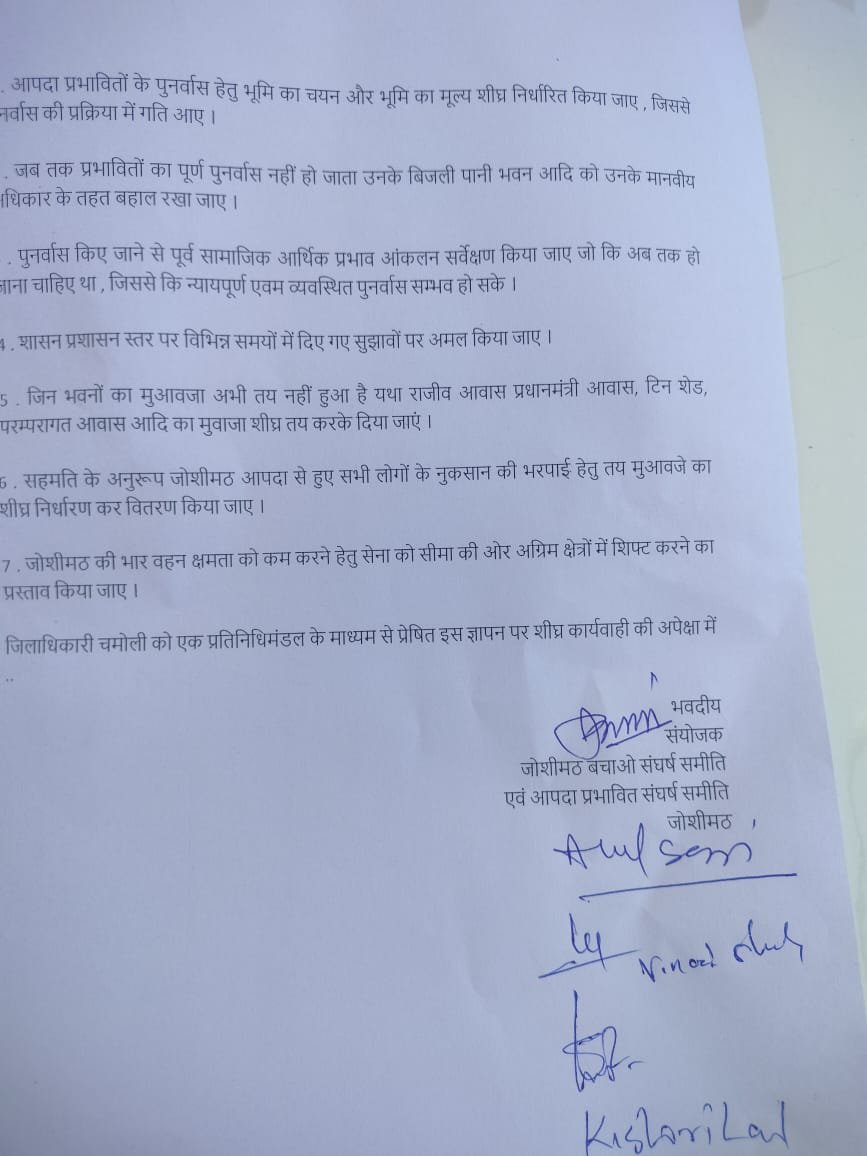 . आपदा प्रभावितों के पुनर्वास हेतु भूमि का चयन और भूमि का मूल्य शीघ्र निर्धारित किया जाए , जिससे
नर्वास की प्रक्रिया में गति आए ।
. जब तक प्रभावितों का पूर्ण पुनर्वास नहीं हो जाता उनके बिजली पानी भवन आदि को उनके मानवीय
धिकार के तहत बहाल रखा जाए ।
. पुनर्वास किए जाने से पूर्व सामाजिक आर्थिक प्रभाव आंकलन सर्वेक्षण किया जाए जो कि अब तक हो
जाना चाहिए था , जिससे कि न्यायपूर्ण एवम व्यवस्थित पुनर्वास सम्भव हो सके ।
4 . शासन प्रशासन स्तर पर विभिन्न समयों में दिए गए सुझावों पर अमल किया जाए ।
5 . जिन भवनों का मुआवजा अभी तय नहीं हुआ है यथा राजीव आवास प्रधानमंत्री आवास, टिन शेड,
परम्परागत आवास आदि का मुवाजा शीघ्र तय करके दिया जाएं ।
6 . सहमति के अनुरूप जोशीमठ आपदा से हुए सभी लोगों के नुकसान की भरपाई हेतु तय मुआवजे का
शीघ्र निर्धारण कर वितरण किया जाए ।
7 . जोशीमठ की भार वहन क्षमता को कम करने हेतु सेना को सीमा की ओर अग्रिम क्षेत्रों में शिफ्ट करने का
प्रस्ताव किया जाए ।
जिलाधिकारी चमोली को एक प्रतिनिधिमंडल के माध्यम से प्रेषित इस ज्ञापन पर शीघ्र कार्यवाही की अपेक्षा में
..
भवदीय
संयोजक
जोशीमठ बचाओ संघर्ष समीति
एवं आपदा प्रभावित संघर्ष समीति
जोशीमठ
Kishori Lal